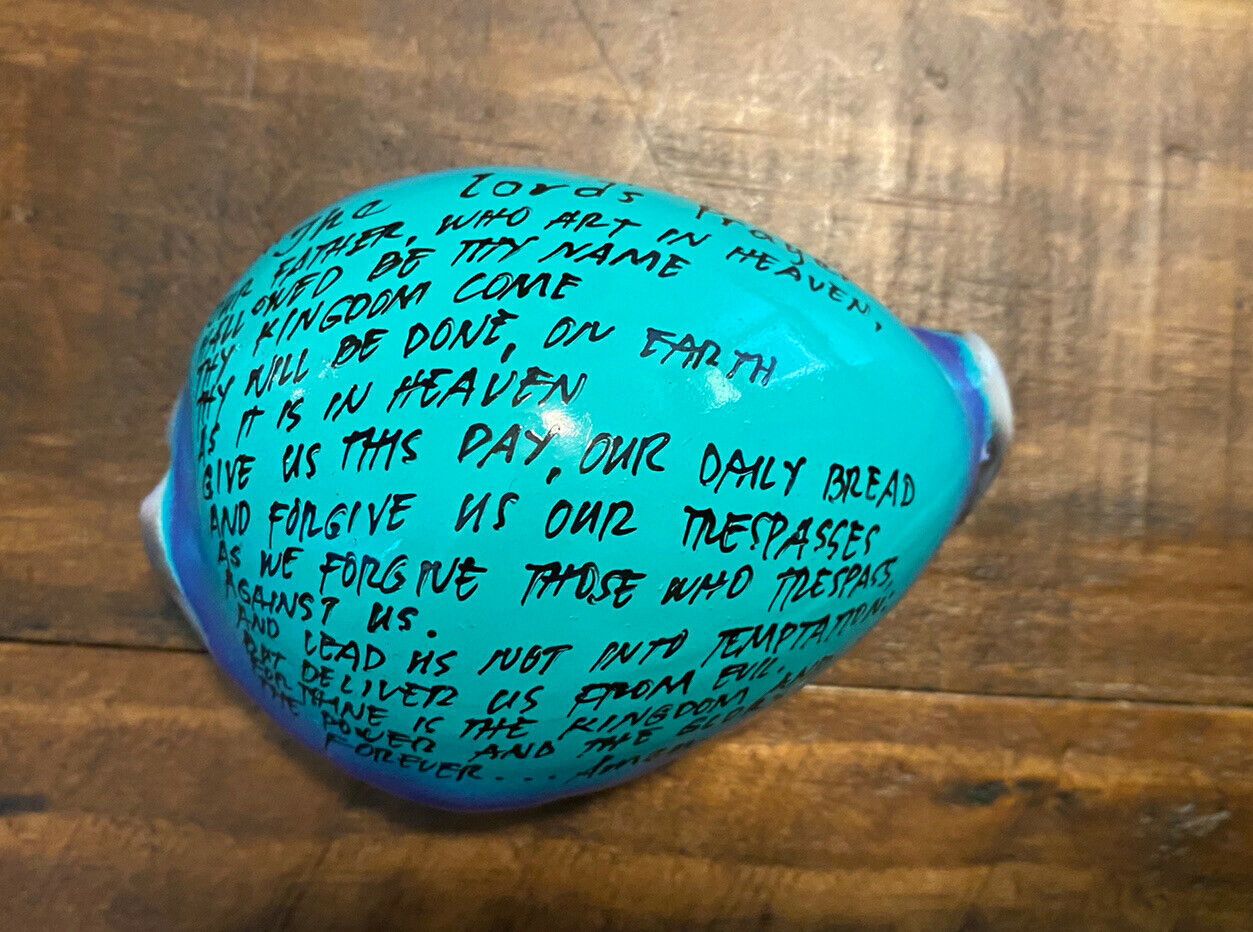 The Lords Prayer
OUR FATHER, WHO ART IN HEAVEN,
HALLOWED BE THY NAME
THY KINGDOM COME
THY WILL BE DONE, ON EARTH
AS IT IS IN HEAVEN
GIVE US THIS DAY, OUR DAILY BREAD
AND FORGIVE US OUR TRESPASSES
AS WE FORGIVE THOSE WHO TRESPASS,
AGAINST US.
AND LEAD US NOT INTO TEMPTATION.
BUT DELIVER US FROM EVIL.
FOR THINE IS THE KINGDOM AND
THE POWER AND THE GLORY
FOREVER... Amen